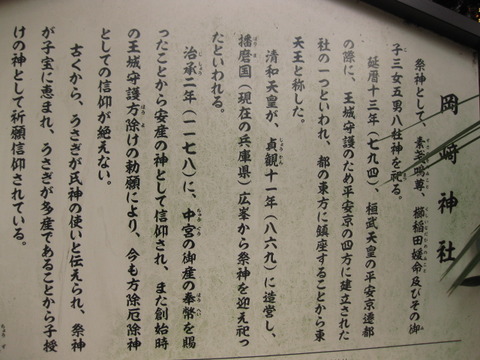 岡﨑神社
祭神として、素戔嗚尊、櫛稲田媛命及びその御
子三女五男八柱神を祀る。
延暦十三年（七九四）、桓武天皇の平安京遷都
の際に、王城守護のため平安京の四方に建立された
社の一つといわれ、都の東方に鎮座することから東
天王と称した。
清和天皇が、貞観十一年（八六九）に造営し、
播磨国（現在の兵庫県）広峯から祭神を迎え祀っ
たといわれる。
治承二年（一一七八）に、中宮の御産の奉幣を賜
ったことから安産の神として信仰され、また創始時
の王城守護方除けの勅願により、今も方除厄除神
としての信仰が絶えない。
古くから、うさぎが氏神の使いと伝えられ、祭神
が子宝に恵まれ、うさぎが多産であることから子授
けの神として祈願信仰されている。